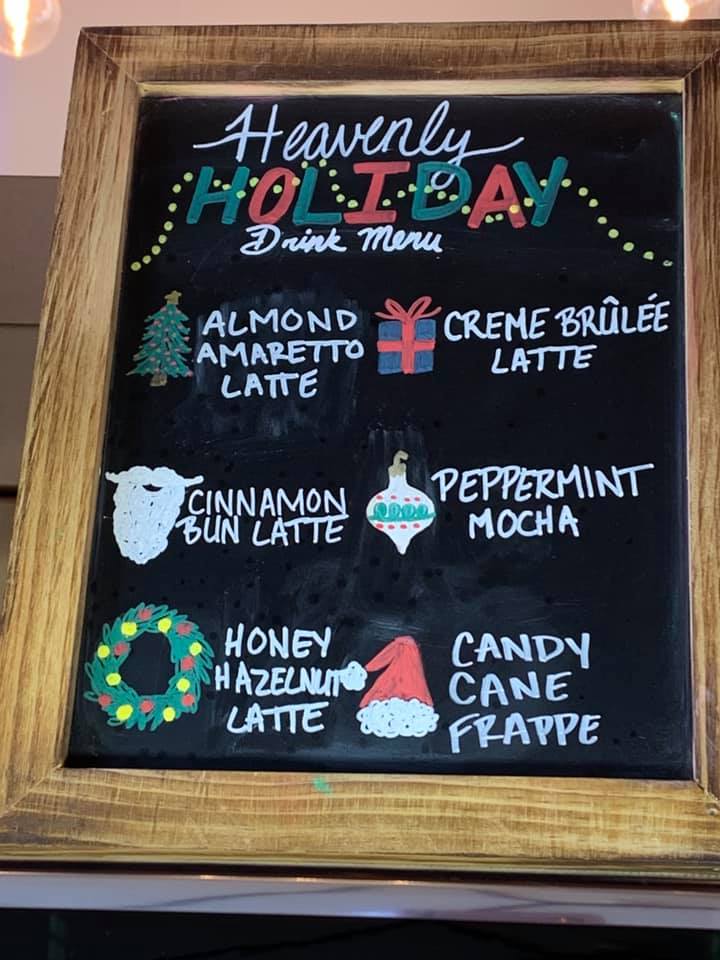 Heavenly
HOLIDAY
Drink Menu
ALMOND
AMARETTO
LATTE
CREME BRÛLÉE
LATTE
CINNAMON
BUN LATTE
PEPPERMINT
MOCHA
HONEY
HAZELNUT
LATTE
CANDY
CANE
FRAPPE